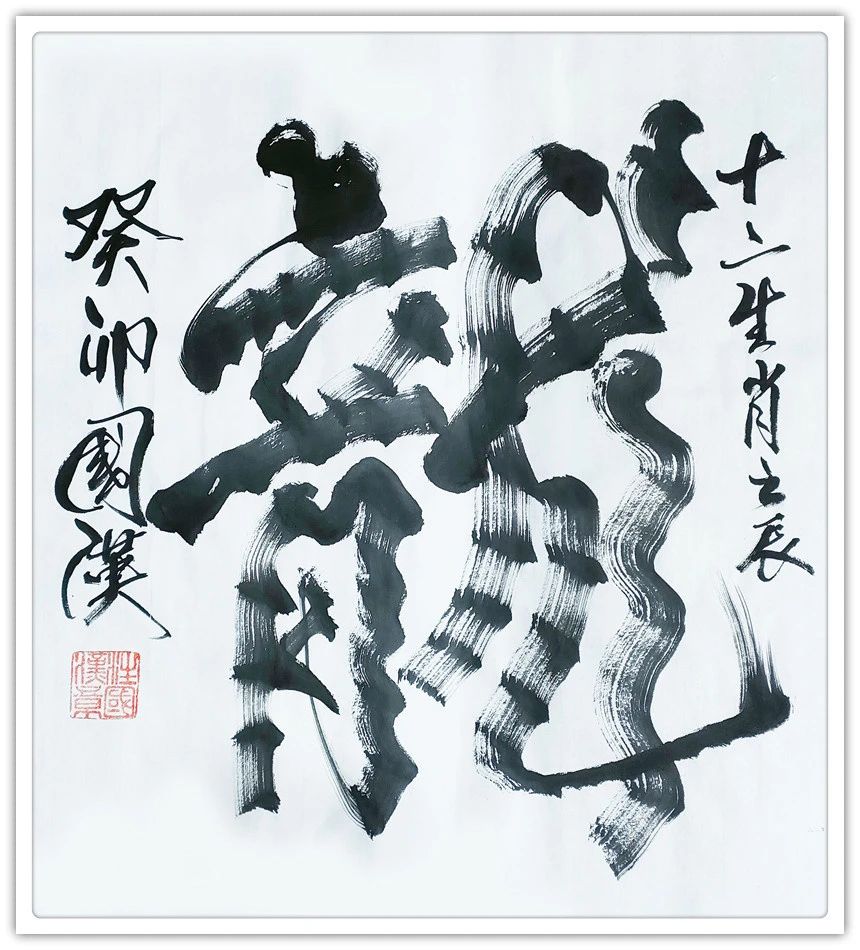 十二生肖之辰
龍
癸卯國漢